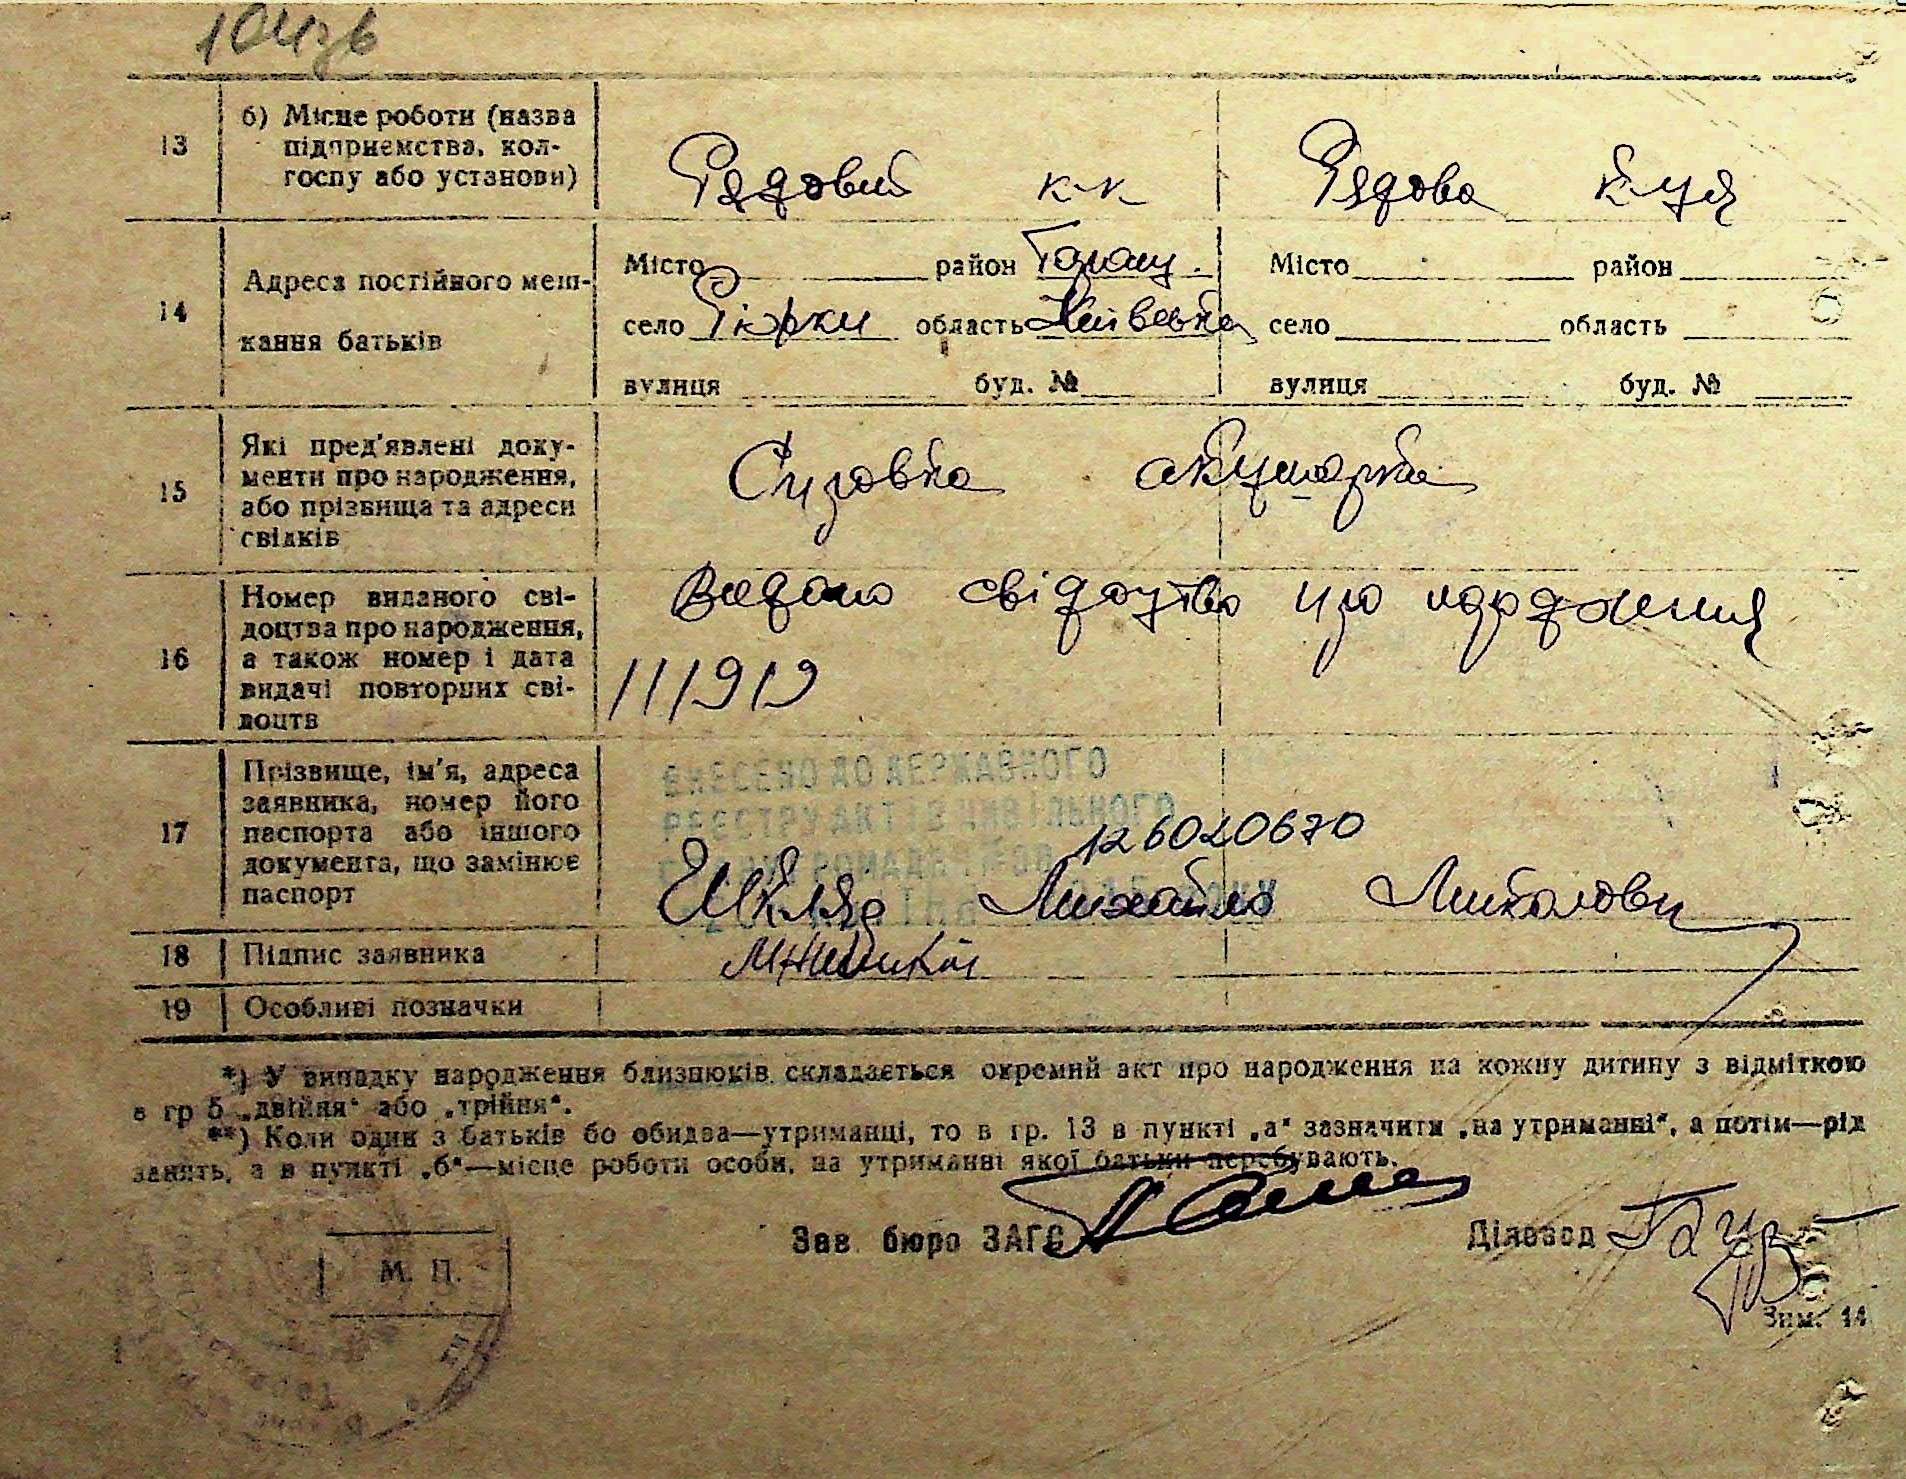 104зв
б) Місце роботи (назва
13
підприємства, кол-
госпу або установи)
Рядовий к-к Рядова к-ця
Місто район Таращ. Місто район
Адреса постійного меш-
14
село область Київська село область
кання батьків
вулиця буд. № вулиця буд. №
Які пред'явлені доку-
менти про народження,
15
або прізвища та адреси
свідків
акушерки
Номер виданого сві-
доцтва про народження,
16
а також номер і дата
видачі повторних сві-
доцтв
Видано свідоцтво про народження
Прізвище, ім'я, адреса
заявника, номер його
17
паспорта або іншого
документа, що замінює
паспорт
ВНЕСЕНО ДО ДЕРЖАВНОГО
РЕЄСТРУ АКТІВ ЦИВІЛЬНОГО
СТАНУ ГРОМАДЯН
126020670
Шкляр Михайло
18 Підпис заявника
19 Особливі позначки
*) У випадку народження близнюків складається окремий акт про народження на кожну дитину з відміткою
в гр 5 „двійня“ або „трійня“.
**) Коли один з батьків бо обидва—утриманці, то в гр. 13 в пункті „а“ зазначити „на утриманні“, а потім—рід
занять, а в пункті „б“—місце роботи особи, на утриманні якої батьки перебувають.
Зав. бюро ЗАГС Діловод
М. П.
Зим. 14